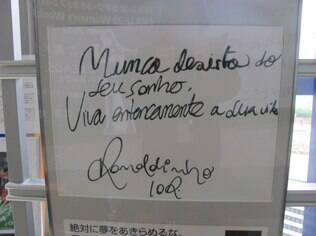 Nunca desista do
seu sonho.
Viva intensamente a sua vida
Ronaldinho
10R
絶対に夢をあきらめるな。